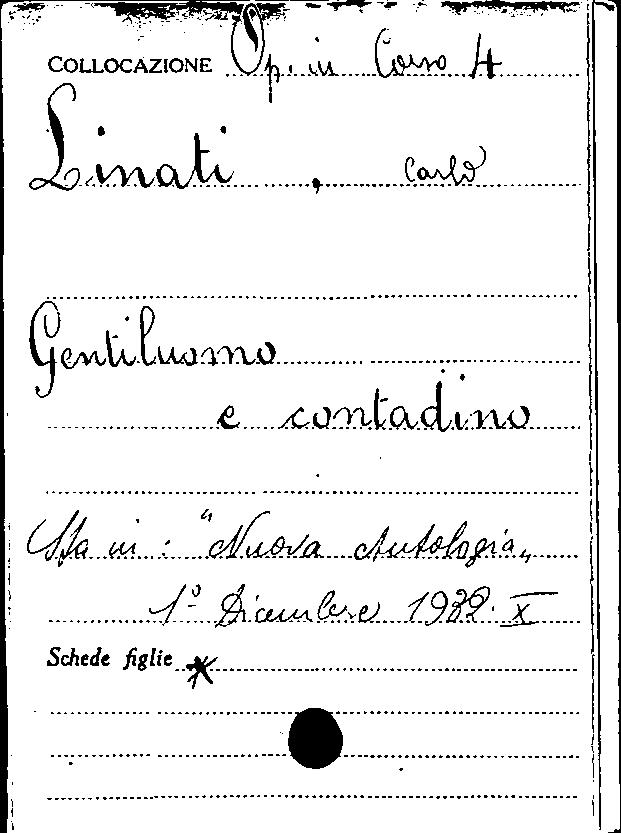 COLLOCAZIONE Op. in Corso 4
Linati, Carlo
Gentiluomo
e contadino
Sta in: "Nuova Antologia„
1° Dicembre 1932. X
Schede figlie